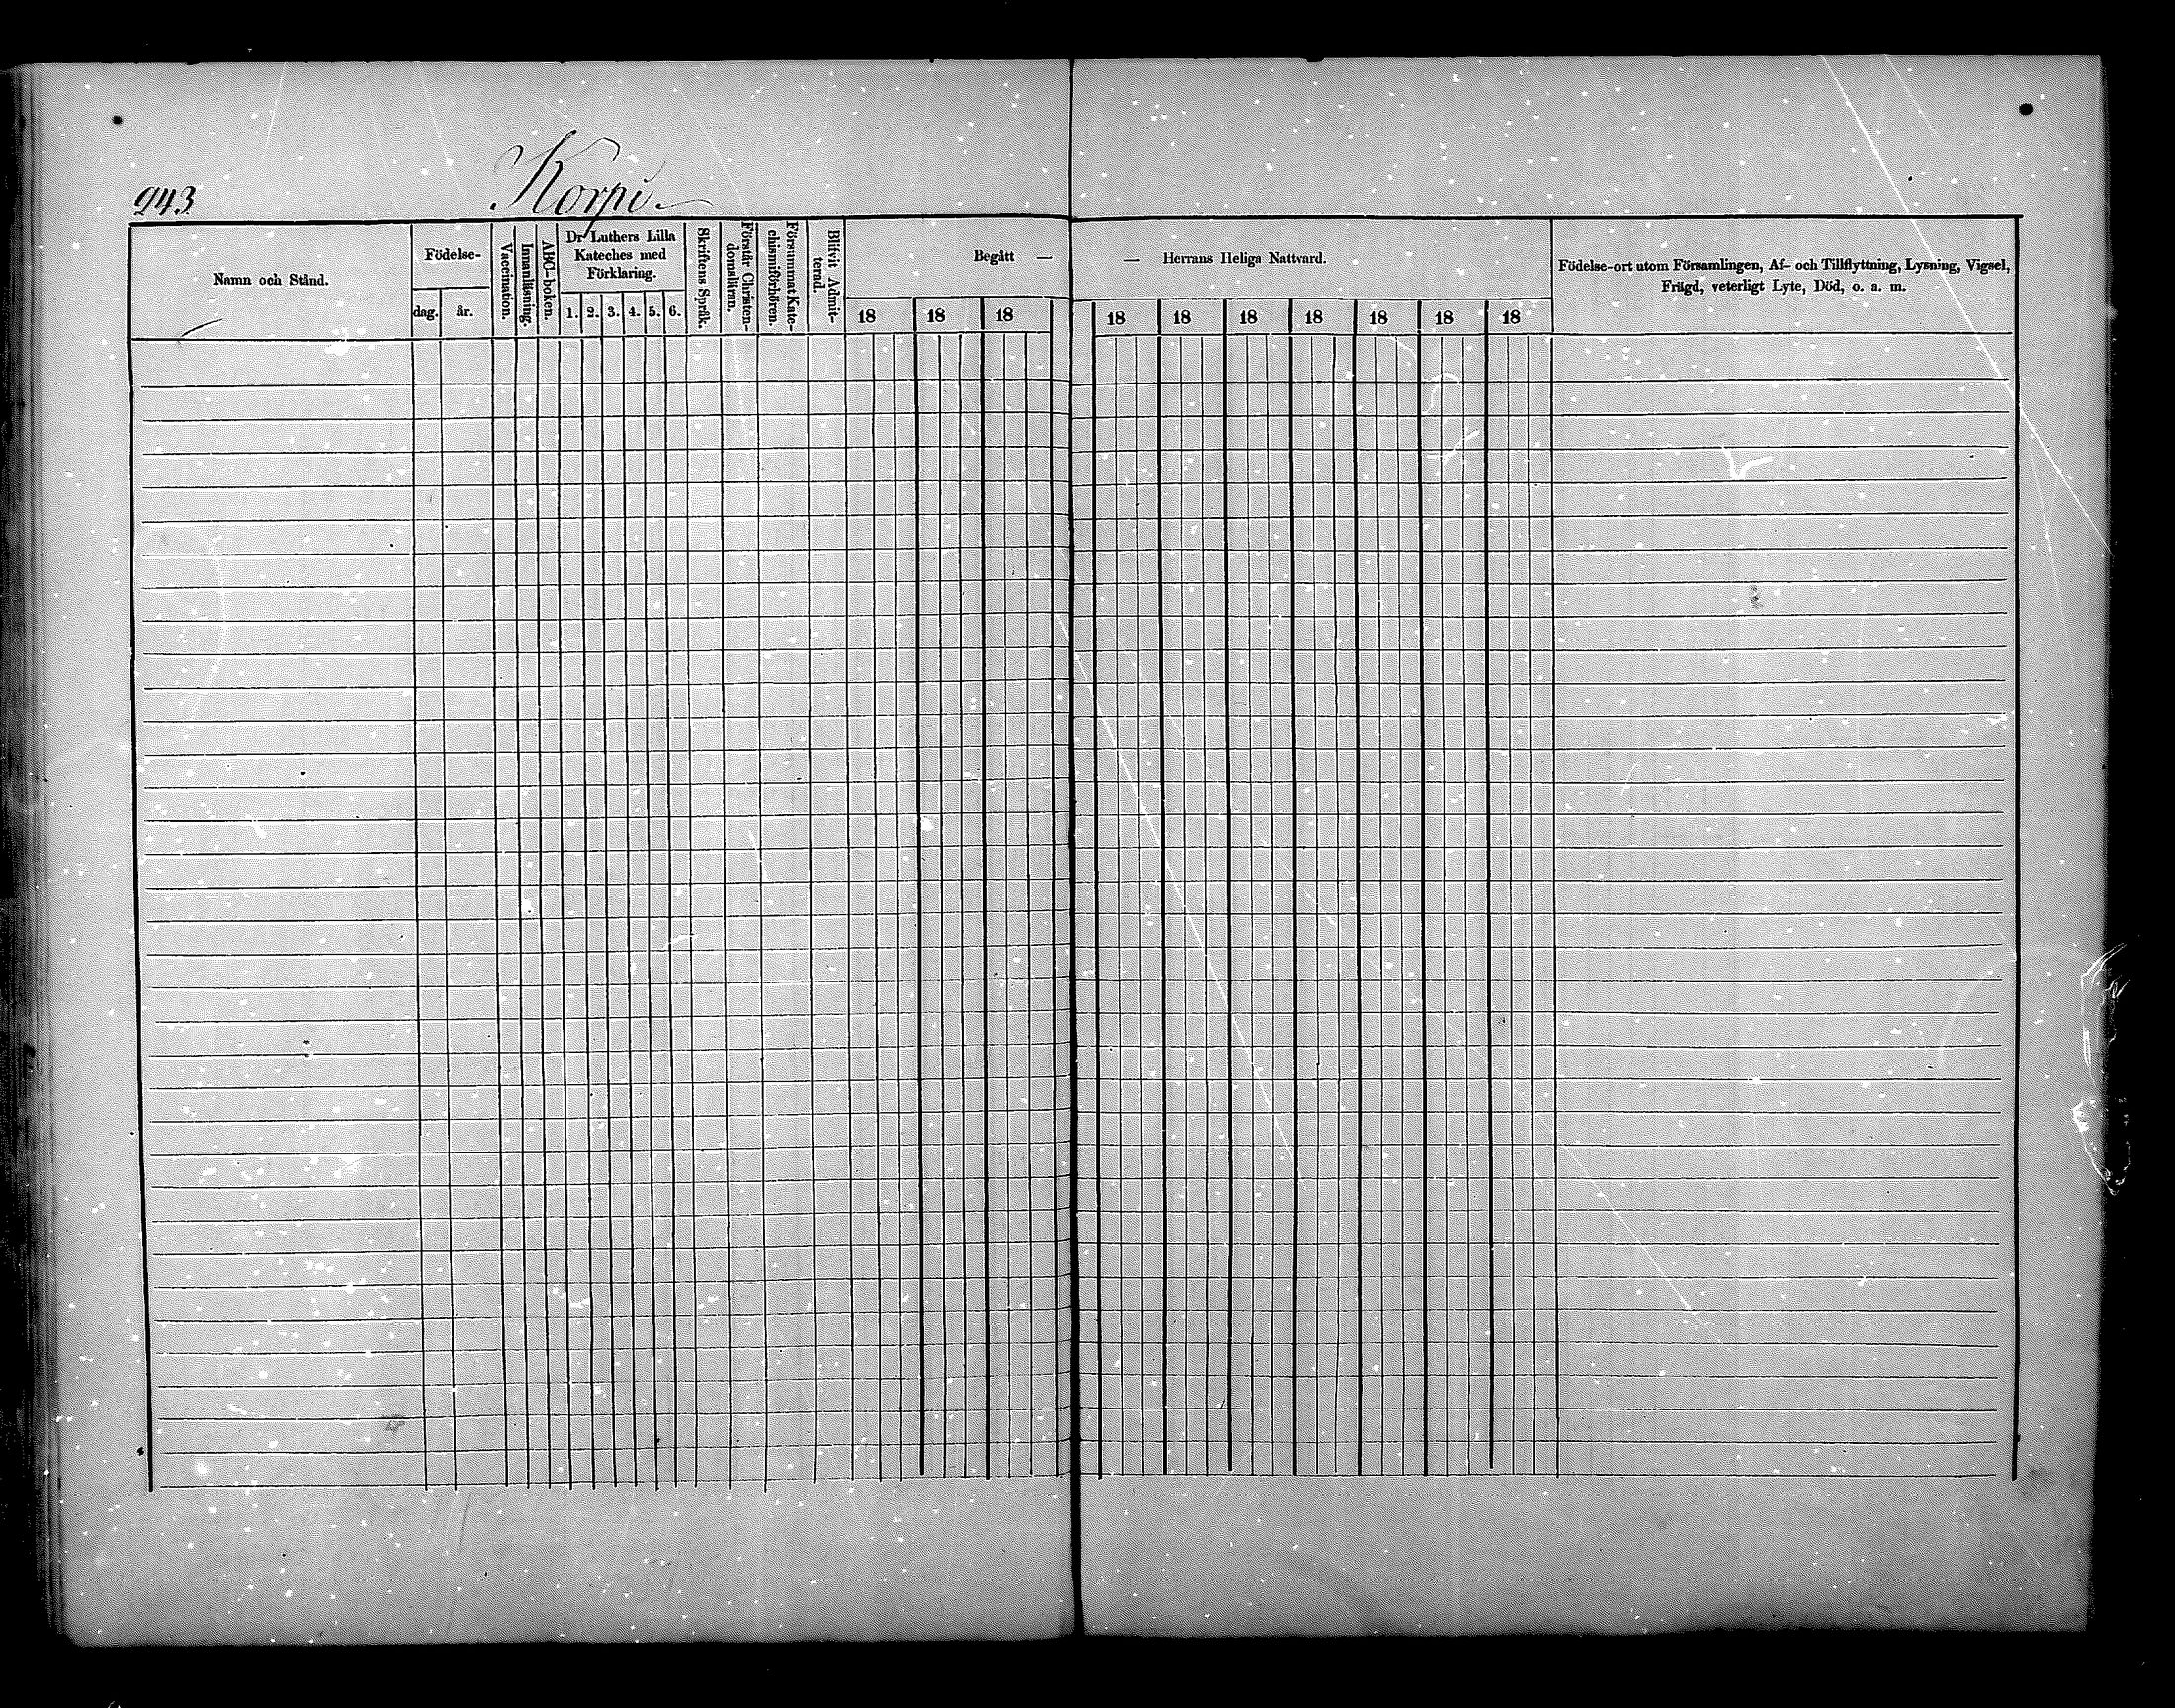 243.
Korpi.
Namn och Stånd.
Födelse-
dag.
år.
Vaccination.
Innanläsning.
ABC-boken.
Dr Luthers Lilla
Kateches med
Förklaring.
1. 2. 3. 4. 5. 6.
Skriftens Språk.
Förstår Christen-
domsläran.
Försummat Kate-
chismiförhören.
Blifvit Admit-
terad.
Begått —
18 18 18
— Herrans Heliga Nattvard.
18 18 18 18 18 18 18
Födelse-ort utom Församlingen, Af- och Tillflyttning, Lysning, Vigsel,
Frägd, veterligt Lyte, Död, o. a. m.